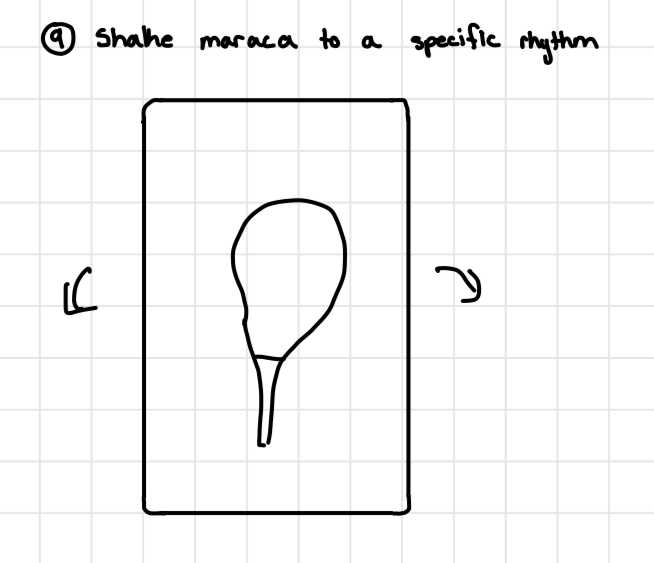 ⑨ Shake maraca to a specific rhythm